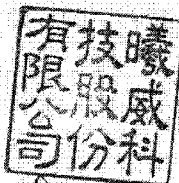 曦威科
技股份
有限公司